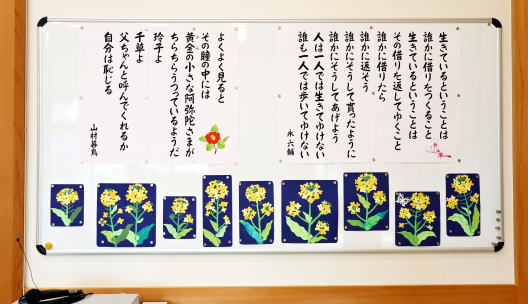 生きているということは
誰かに借りをつくること
生きているということは
その借りを返してゆくこと
誰かに借りたら
誰かに返そう
誰かにそうして貰ったように
誰かにそうしてあげよう
人は一人では生きてゆけない
誰も一人では歩いてゆけない
永 六輔
よくよく見ると
その瞳の中には
黄金の小さな阿弥陀さまが
ちらちらうつっているようだ
玲子よ
千草よ
父ちゃんと呼んでくれるか
自分は恥じる
山村暮鳥